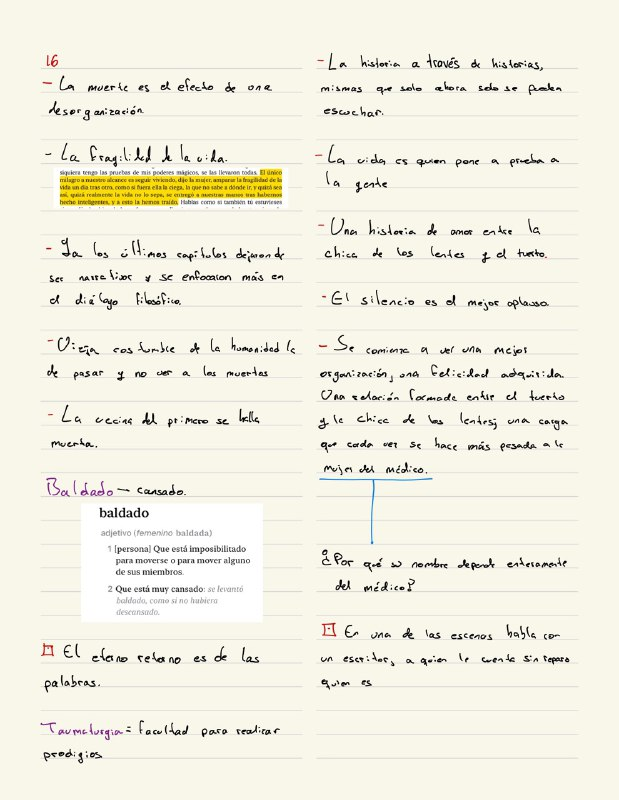 16
- La muerte es el efecto de una
desorganización
- La fragilidad de la vida.
siquiera tengo las pruebas de mis poderes mágicos, se las llevaron todas. El único
milagro a nuestro alcance es seguir viviendo, dijo la mujer, amparar la fragilidad de la
vida un día tras otro, como si fuera ella la ciega, la que no sabe a dónde ir, y quizá sea
así, quizá realmente la vida no lo sepa, se entregó a nuestras manos tras habernos
hecho inteligentes, y a esto la hemos traído. Hablas como si también tú estuvieses
- Ya los últimos capítulos dejaron de
ser narrativos y se enfocaron más en
el diálogo filosófico.
- Vieja costumbre de la humanidad la
de pasar y no ver a los muertos
- La vecina del primero se halla
muerta.
Baldado - cansado.
baldado
adjetivo (femenino baldada)
1 [persona] Que está imposibilitado
para moverse o para mover alguno
de sus miembros.
2 Que está muy cansado: se levantó
baldado, como si no hubiera
descansado.
El eterno retorno es de las
palabras.
Taumaturgia = facultad para realizar
prodigios
- La historia a través de historias,
mismas que solo ahora solo se pueden
escuchar.
- La vida es quien pone a prueba a
la gente
- Una historia de amor entre la
chica de los lentes y el tuerto.
- El silencio es el mejor aplauso.
- Se comienza a ver una mejor
organización, una felicidad adquirida.
Una relación formada entre el tuerto
y la chica de los lentes; una carga
que cada vez se hace más pesada a la
mujer del médico.
¿Por qué su nombre depende enteramente
del médico?
En una de las escenas habla con
un escritor, a quien le cuenta sin reparo
quien es